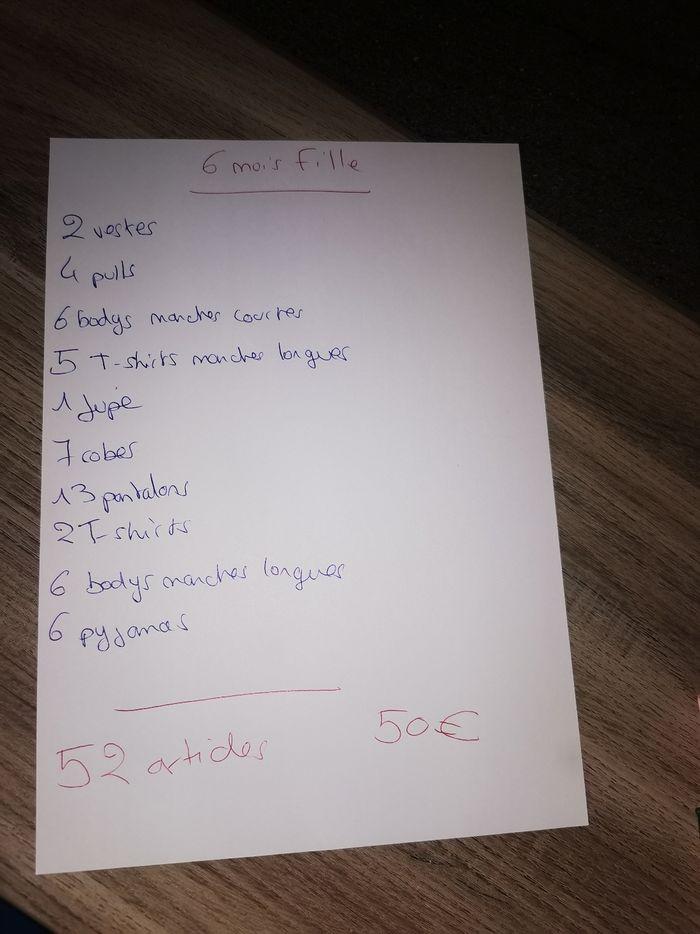 6 mois Fille
2 vestes
4 pulls
6 bodys manches courtes
5 T-shirts manches longues
1 Jupe
7 robes
13 pantalons
2 T-shirts
6 bodys manches longues
6 pyjamas
52 articles 50€